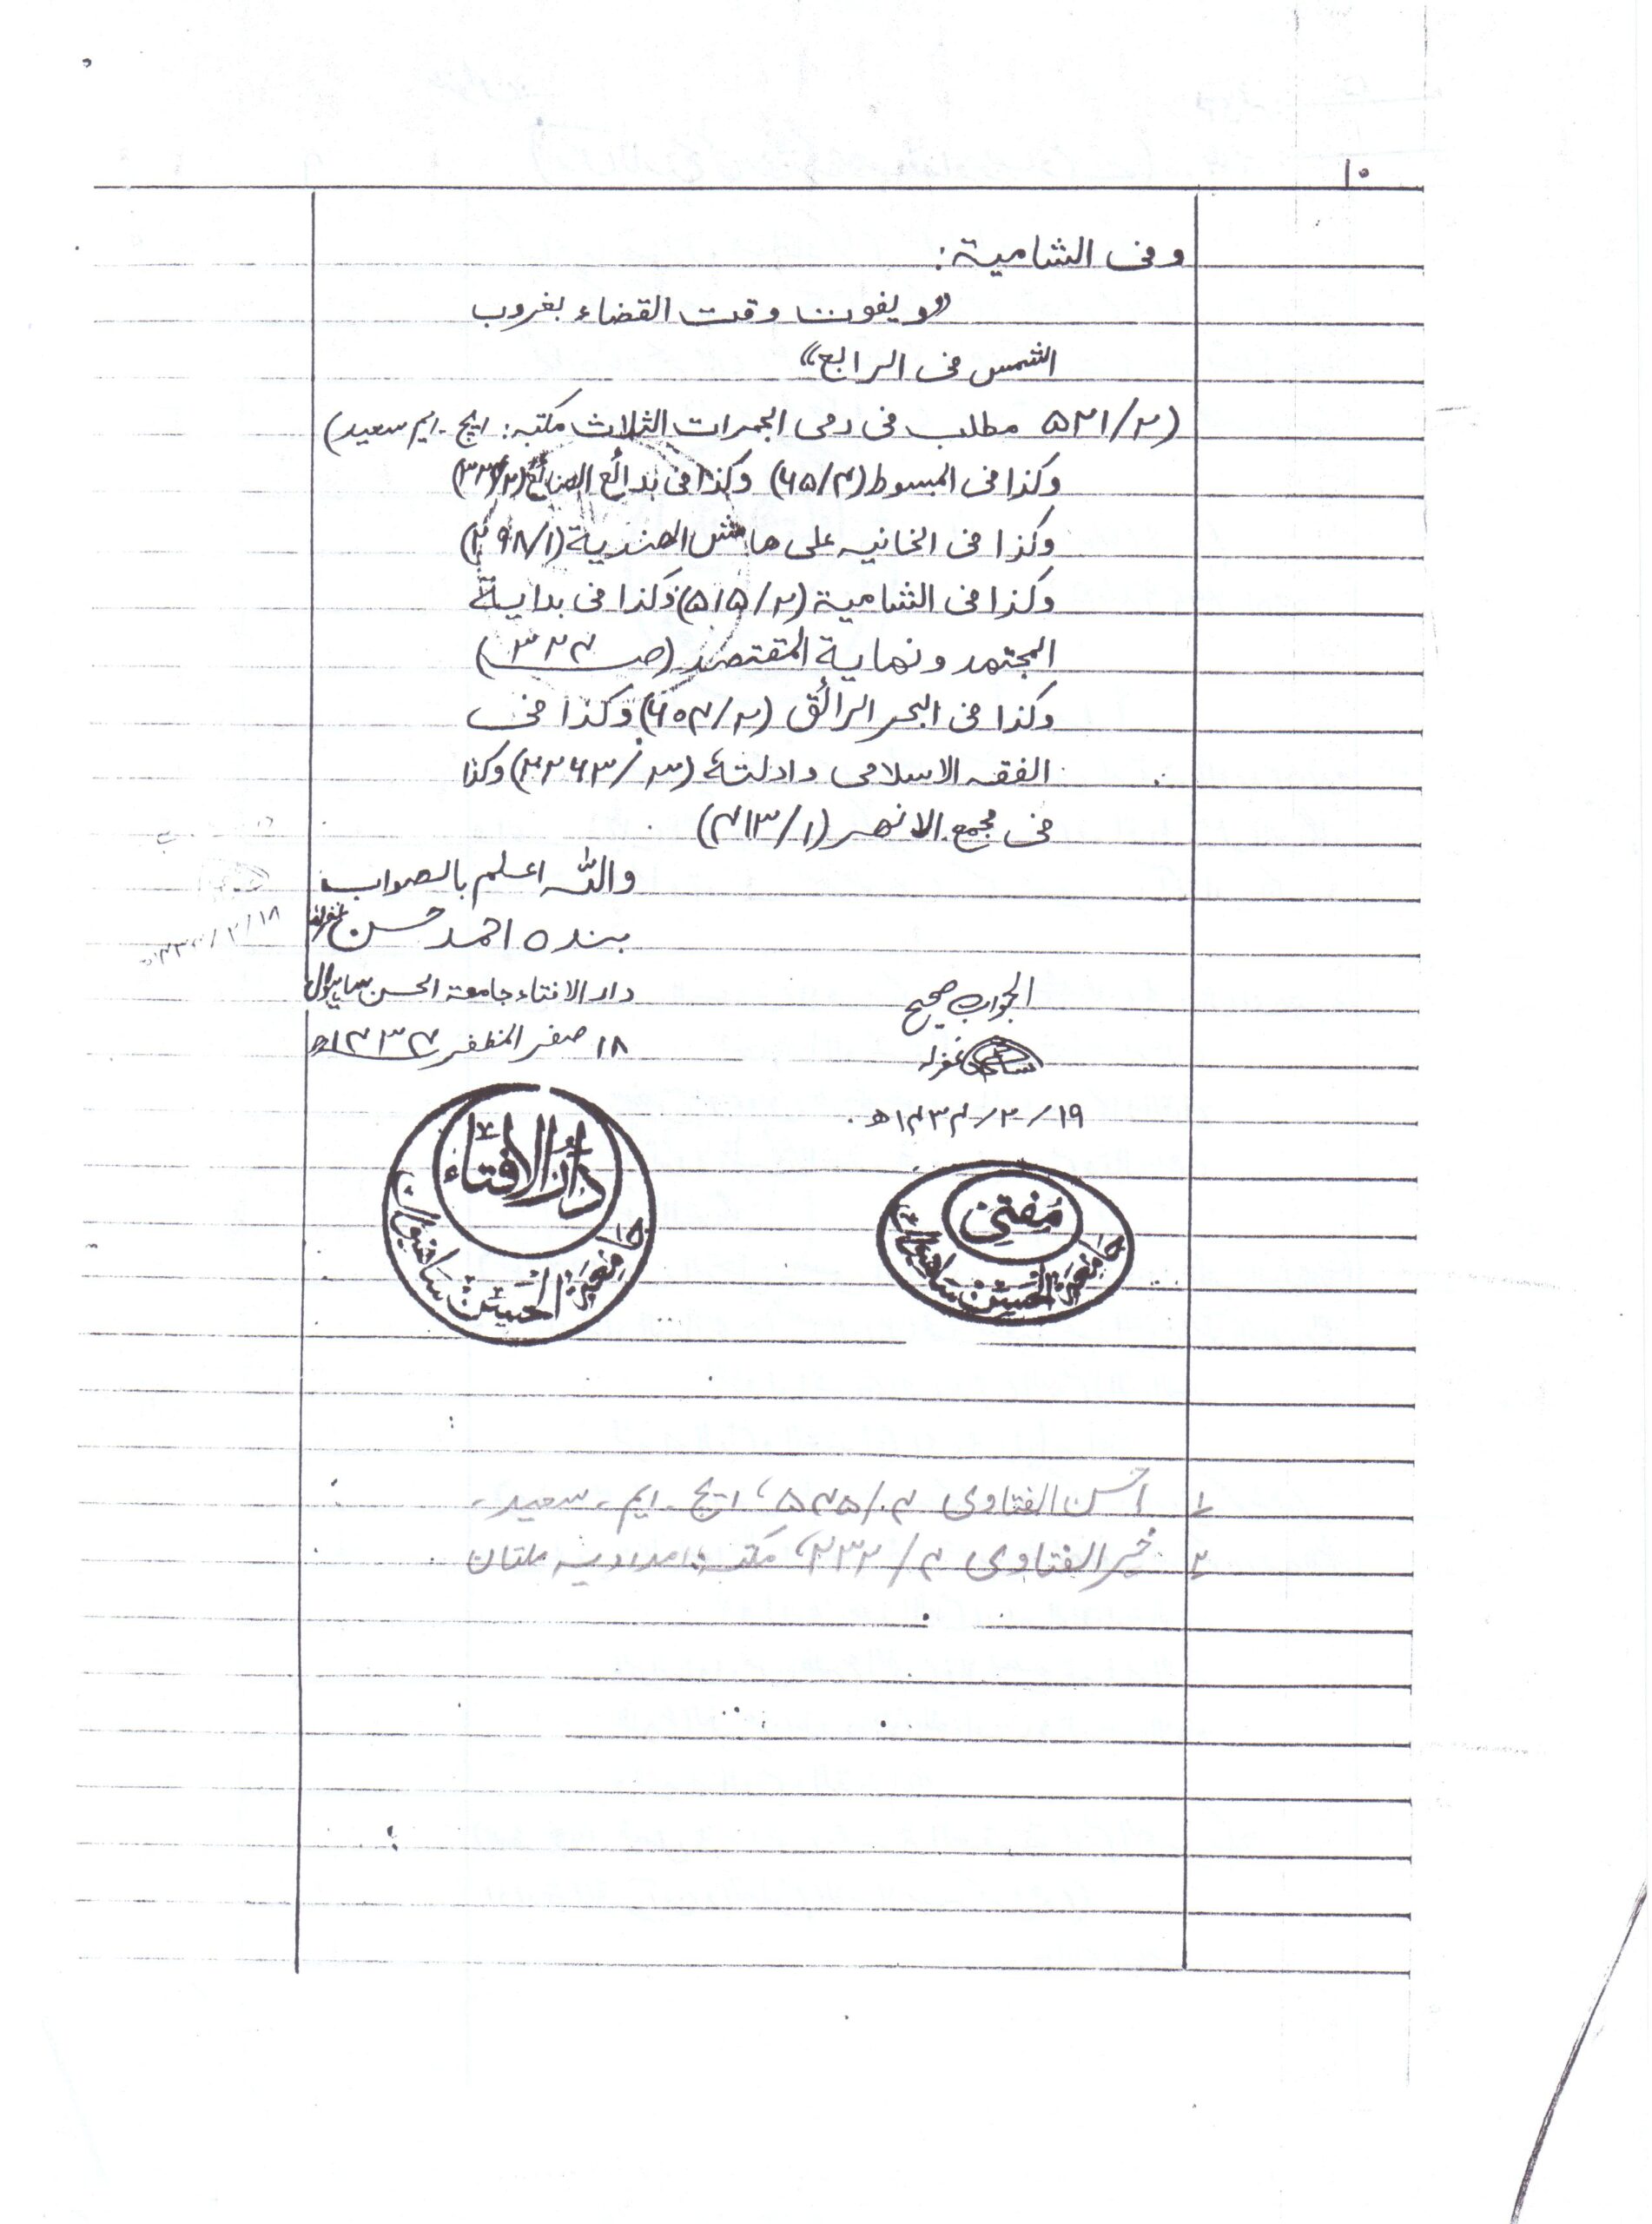 ۱۰
وفی الشامیة:
"ویفوت وقت القضاء بغروب
الشمس فی الرابع"
(۵۲۱/۲ مطلب فی رمی الجمرات الثلاث مکتبہ: ایچ۔ایم سعید)
وکذا فی المبسوط (۶۵/۴) وکذا فی بدائع الصنائع
وکذا فی الخانیہ علی ھامش الھندیة (۲۹۸/۱)
وکذا فی الشامیة (۵۱۵/۲) وکذا فی بدایة
المجتھد ونھایة المقتصد (صـ ۳۲۴)
وکذا فی البحر الرائق (۶۰۴/۲) وکذا فی
الفقہ الاسلامی وادلتہٗ (۲۲۶۳/۳) وکذا
فی مجمع الانھر (۴۱۳/۱)
واللہ اعلم بالصواب
بندہ احمد حسن غفرلہ
دار الافتاء جامعة الحسن ساہیوال
۱۸ صفر المظفر ۱۴۳۴ھ
الجواب صحیح
غفرلہ
۱۹/۲/۱۴۳۴ھ
دار الافتاء
جامعة الحسن ساہیوال
مفتی
جامعة الحسن ساہیوال
۱۸/۲/
۱ احسن الفتاوی ۵۴۵/۴، ایچ۔ایم۔سعید۔
۲ خیر الفتاوی ۲۳۲/۴، مکتبہ امدادیہ ملتان